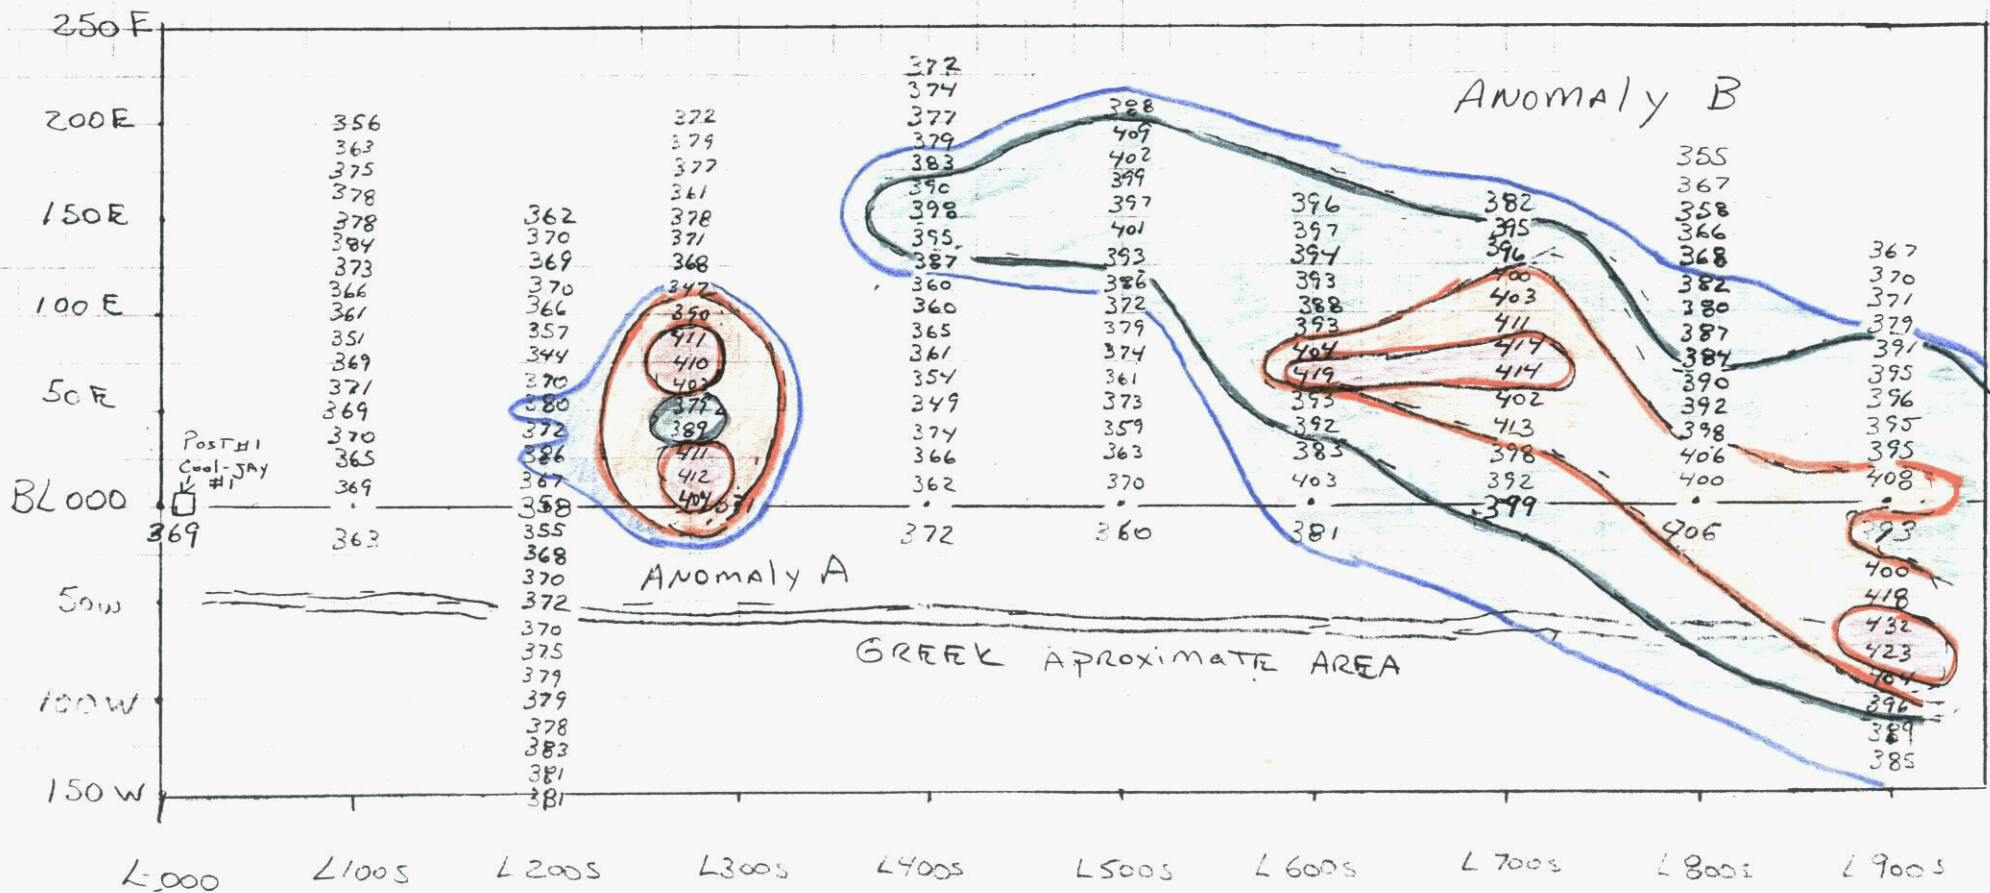 250 E
200 E
150 E
100 E
50 E
BL 000
50 W
100 W
150 W
POST #1
Cool-JAY
#1
369
356
363
375
378
378
384
373
366
361
351
369
371
369
370
365
369
363
362
370
369
370
366
357
344
370
380
372
386
367
358
355
368
370
372
370
375
379
379
378
383
381
381
372
379
377
361
378
371
368
347
390
411
410
402
379
389
411
412
404
372
374
377
379
383
390
398
395
387
360
360
365
361
354
349
374
366
362
372
388
409
402
399
397
401
393
386
372
379
374
361
373
359
363
370
360
396
397
394
393
388
393
404
419
393
392
385
403
381
382
395
396
400
403
411
414
414
402
413
398
392
399
355
367
358
366
368
382
380
387
384
390
392
398
406
400
406
367
370
371
379
391
395
396
395
395
408
393
400
418
432
423
404
396
389
385
ANOMAlY A
ANOMAlY B
GREEK APROXIMATE AREA
L000
L100S
L200S
L300S
L400S
L500S
L600S
L700S
L800S
L900S